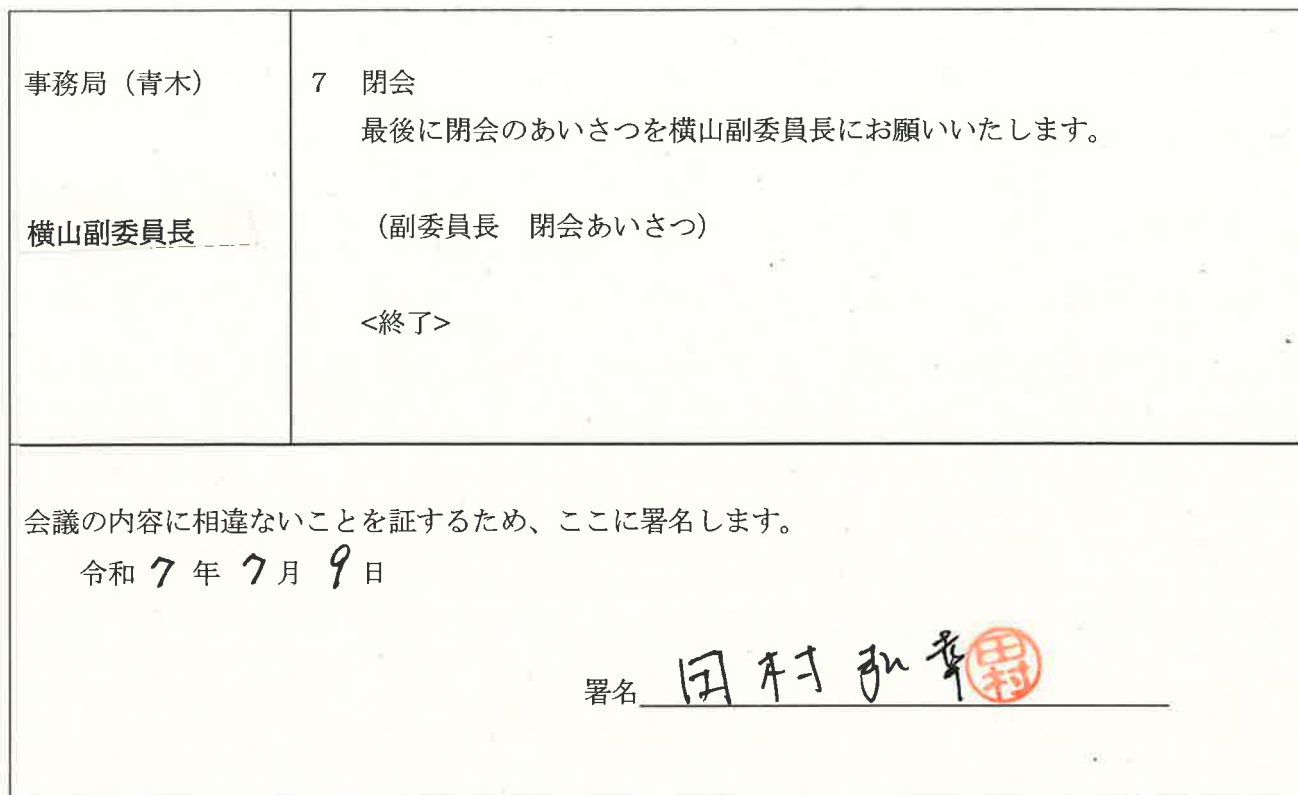 事務局（青木）
7　閉会
最後に閉会のあいさつを横山副委員長にお願いいたします。
横山副委員長
（副委員長　閉会あいさつ）
<終了>
会議の内容に相違ないことを証するため、ここに署名します。
令和 7 年 7 月 9 日
署名 田村 弘幸
田村